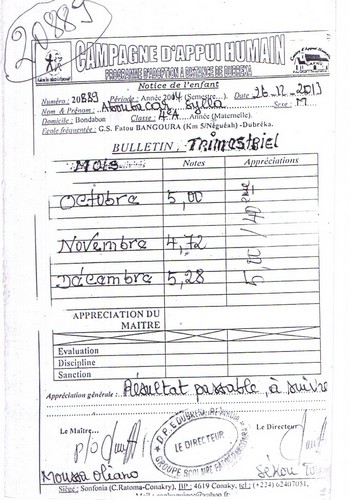 20889
CAMPAGNE D'APPUI HUMAIN
PROGRAMME D'ADOPTION A DISTANCE DE DUBREKA
Notice de l'enfant
Numéro : 20889 Période : Année 2014 (Semestre....). Date 26-12-2013
Nom & Prénom : Aboubacar Sylla Sexe : M
Domicile : Bondabun Classe : 4e A Année (Maternelle).
Ecole fréquentée : G.S. Fatou BANGOURA (Km 5/Néguéah) -Dubréka.
BULLETIN : Trimestriel
Mois Notes Appréciations
Octobre 5,00
Novembre 4,72
Décembre 5,28
5,00 / 40eme
APPRECIATION DU
MAITRE
Evaluation
Discipline
Sanction
Appréciation générale : Résultat passable, à suivre
Le Maître... Le Directeur
P/O
D.P.E DUBREKA
LE DIRECTEUR
GROUPE SCOLAIRE
Moussa Sékou
Siège : Sonfonia (C.Ratoma-Conakry), BP : 4619 Conaky, tel : (+224) 62407051.